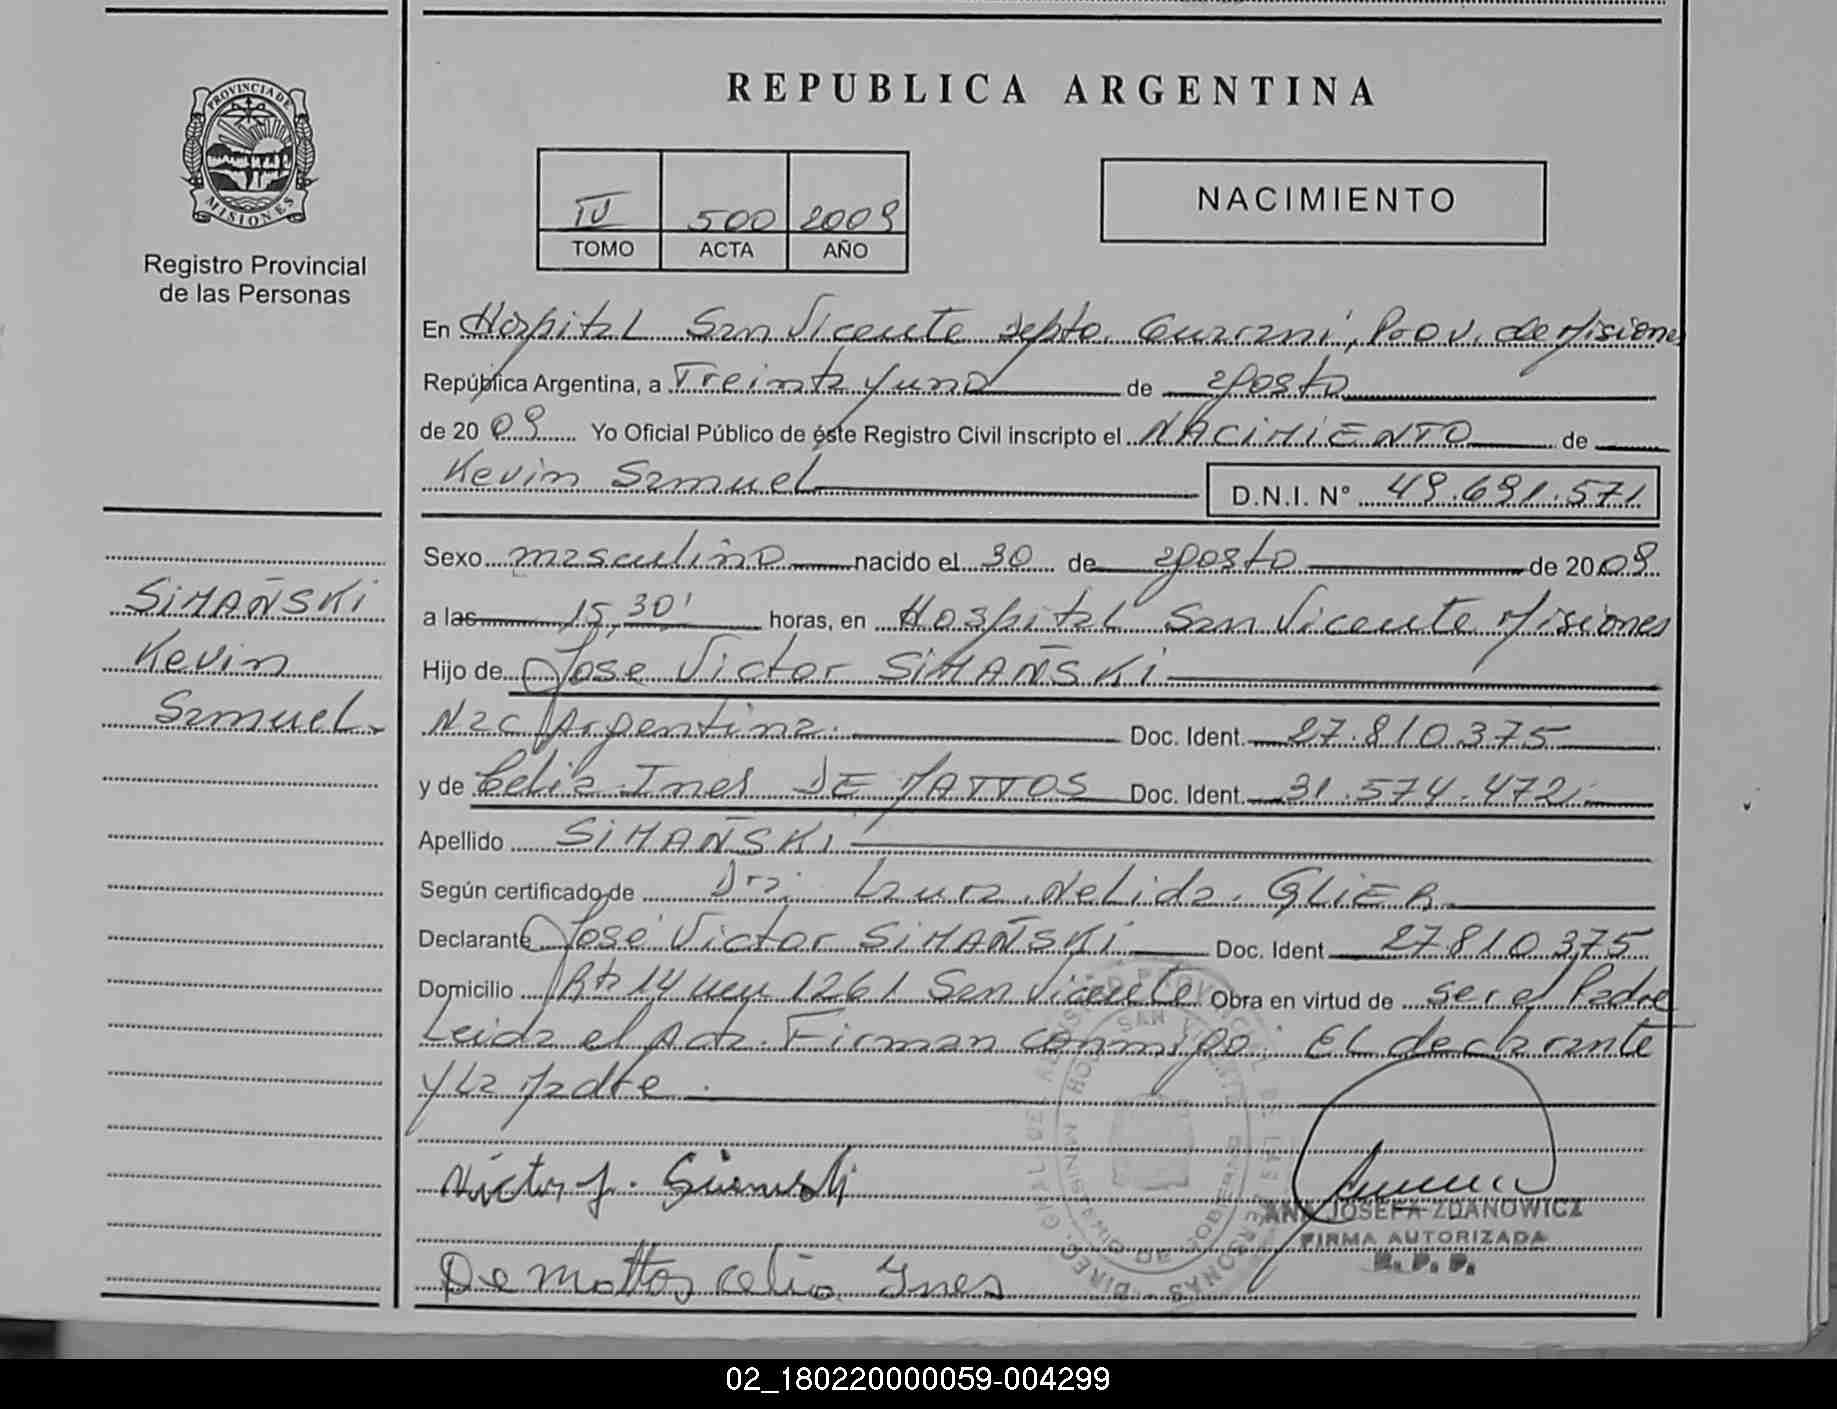 REPUBLICA ARGENTINA
PROVINCIA DE
MISIONES
Registro Provincial
de las Personas
IV 500 2009
TOMO ACTA AÑO
NACIMIENTO
En Hospital San Vicente depto. Guarani, Prov. de Misiones
República Argentina, a Treinta y uno de agosto
de 2009 Yo Oficial Público de éste Registro Civil inscripto el NACIMIENTO de
Kevin Samuel D.N.I. Nº 49.691.571
Sexo masculino nacido el 30 de agosto de 2009
a las 15,30' horas, en Hospital San Vicente Misiones
Hijo de Jose Victor SiMAÑSKi
Nac Argentina. Doc. Ident. 27.810.375
y de Celia Ines DE MATTOS Doc. Ident. 31.574.472
Apellido SiMAÑSKi
Según certificado de Dra. Laura Nelida GLiER
Declarante José Victor SiMAÑSKi Doc. Ident 27810375
Domicilio Rta 14 km 1261 San Vicente Obra en virtud de ser el Padre
Leida el Acta. Firman conmigo: EL declarante
y La Madre.
SiMAÑSKi
Kevin
Samuel
Victor J. Simanski
De Mattos celia Ynes
ANA JOSEFA ZDANOWICZ
FIRMA AUTORIZADA
R. P. P.
02_180220000059-004299